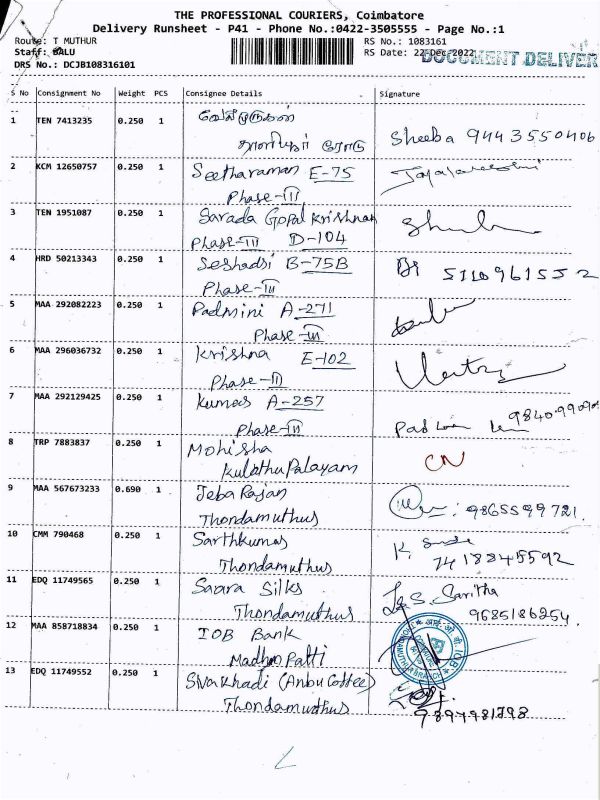 THE PROFESSIONAL COURIERS, Coimbatore
Delivery Runsheet - P41 - Phone No.:0422-3505555 - Page No.:1
Route: T MUTHUR RS No.: 1083161
Staff: BALU RS Date: 22-Dec-2022 DOCUMENT DELIVER
DRS No.: DCJB108316101
S No Consignment No Weight PCS Consignee Details Signature
1 TEN 7413235 0.250 1 வேல்முருகன்
ரோடு Sheeba 9443550406
2 KCM 12650757 0.250 1 Seetharaman E-75
Phase-III
3 TEN 1951087 0.250 1 Sarada Gopal Krishnan
Phase-III D-104
4 HRD 50213343 0.250 1 Seshadri B-75B 5110961552
Phase-III
5 MAA 292082223 0.250 1 Padmini A-271
Phase-III
6 MAA 296036732 0.250 1 Krishna E-102
Phase-III
7 MAA 292129425 0.250 1 Kumar A-257
Phase-III
8 TRP 7883837 0.250 1 Mohisha CN
Kulathu Palayam
9 MAA 567673233 0.690 1 Jeba Rajan 9865599721.
Thondamuthur
10 CMM 790468 0.250 1 Sarthkumar K.
Thondamuthur 7418845592
11 EDQ 11749565 0.250 1 Saara Silks S. Saritha
Thondamuthur 9685186254.
12 MAA 858718834 0.250 1 IOB Bank
Madham Patti
13 EDQ 11749552 0.250 1 Sivakhadi (Anbu Coffee)
Thondamuthur